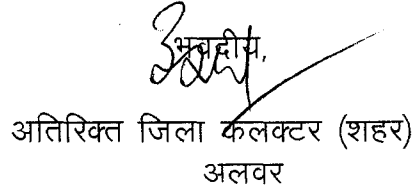 भवदीय,
अतिरिक्त जिला कलक्टर (शहर)
अलवर